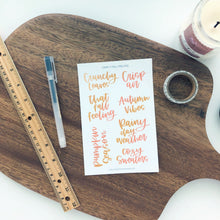 Crunchy
Leaves
Crisp
air
That
Fall
Feeling
Autumn
Vibes
Pumpkin
Season
Rainy
day
weather
Cozy
Sweaters